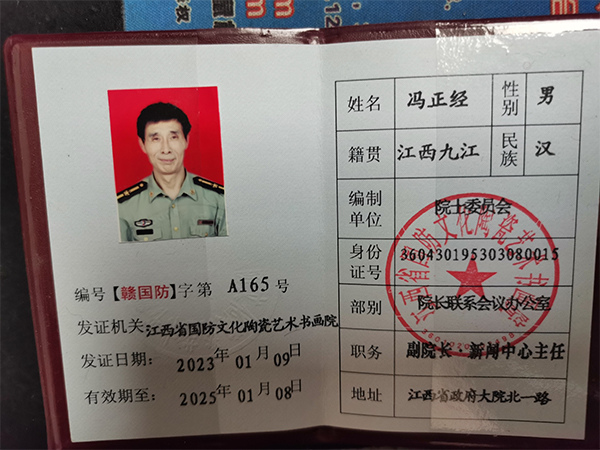 编号【赣国防】字第 A165 号
发证机关 江西省国防文化陶瓷艺术书画院
发证日期: 2023年 01月 09日
有效期至: 2025年 01月 08日
姓名 冯正经 性别 男
籍贯 江西九江 民族 汉
编制单位 院士委员会
身份证号 360430195303080015
部别 院长联系会议办公室
职务 副院长 新闻中心主任
地址 江西省政府大院北一路
江西省国防文化陶瓷艺术书画院